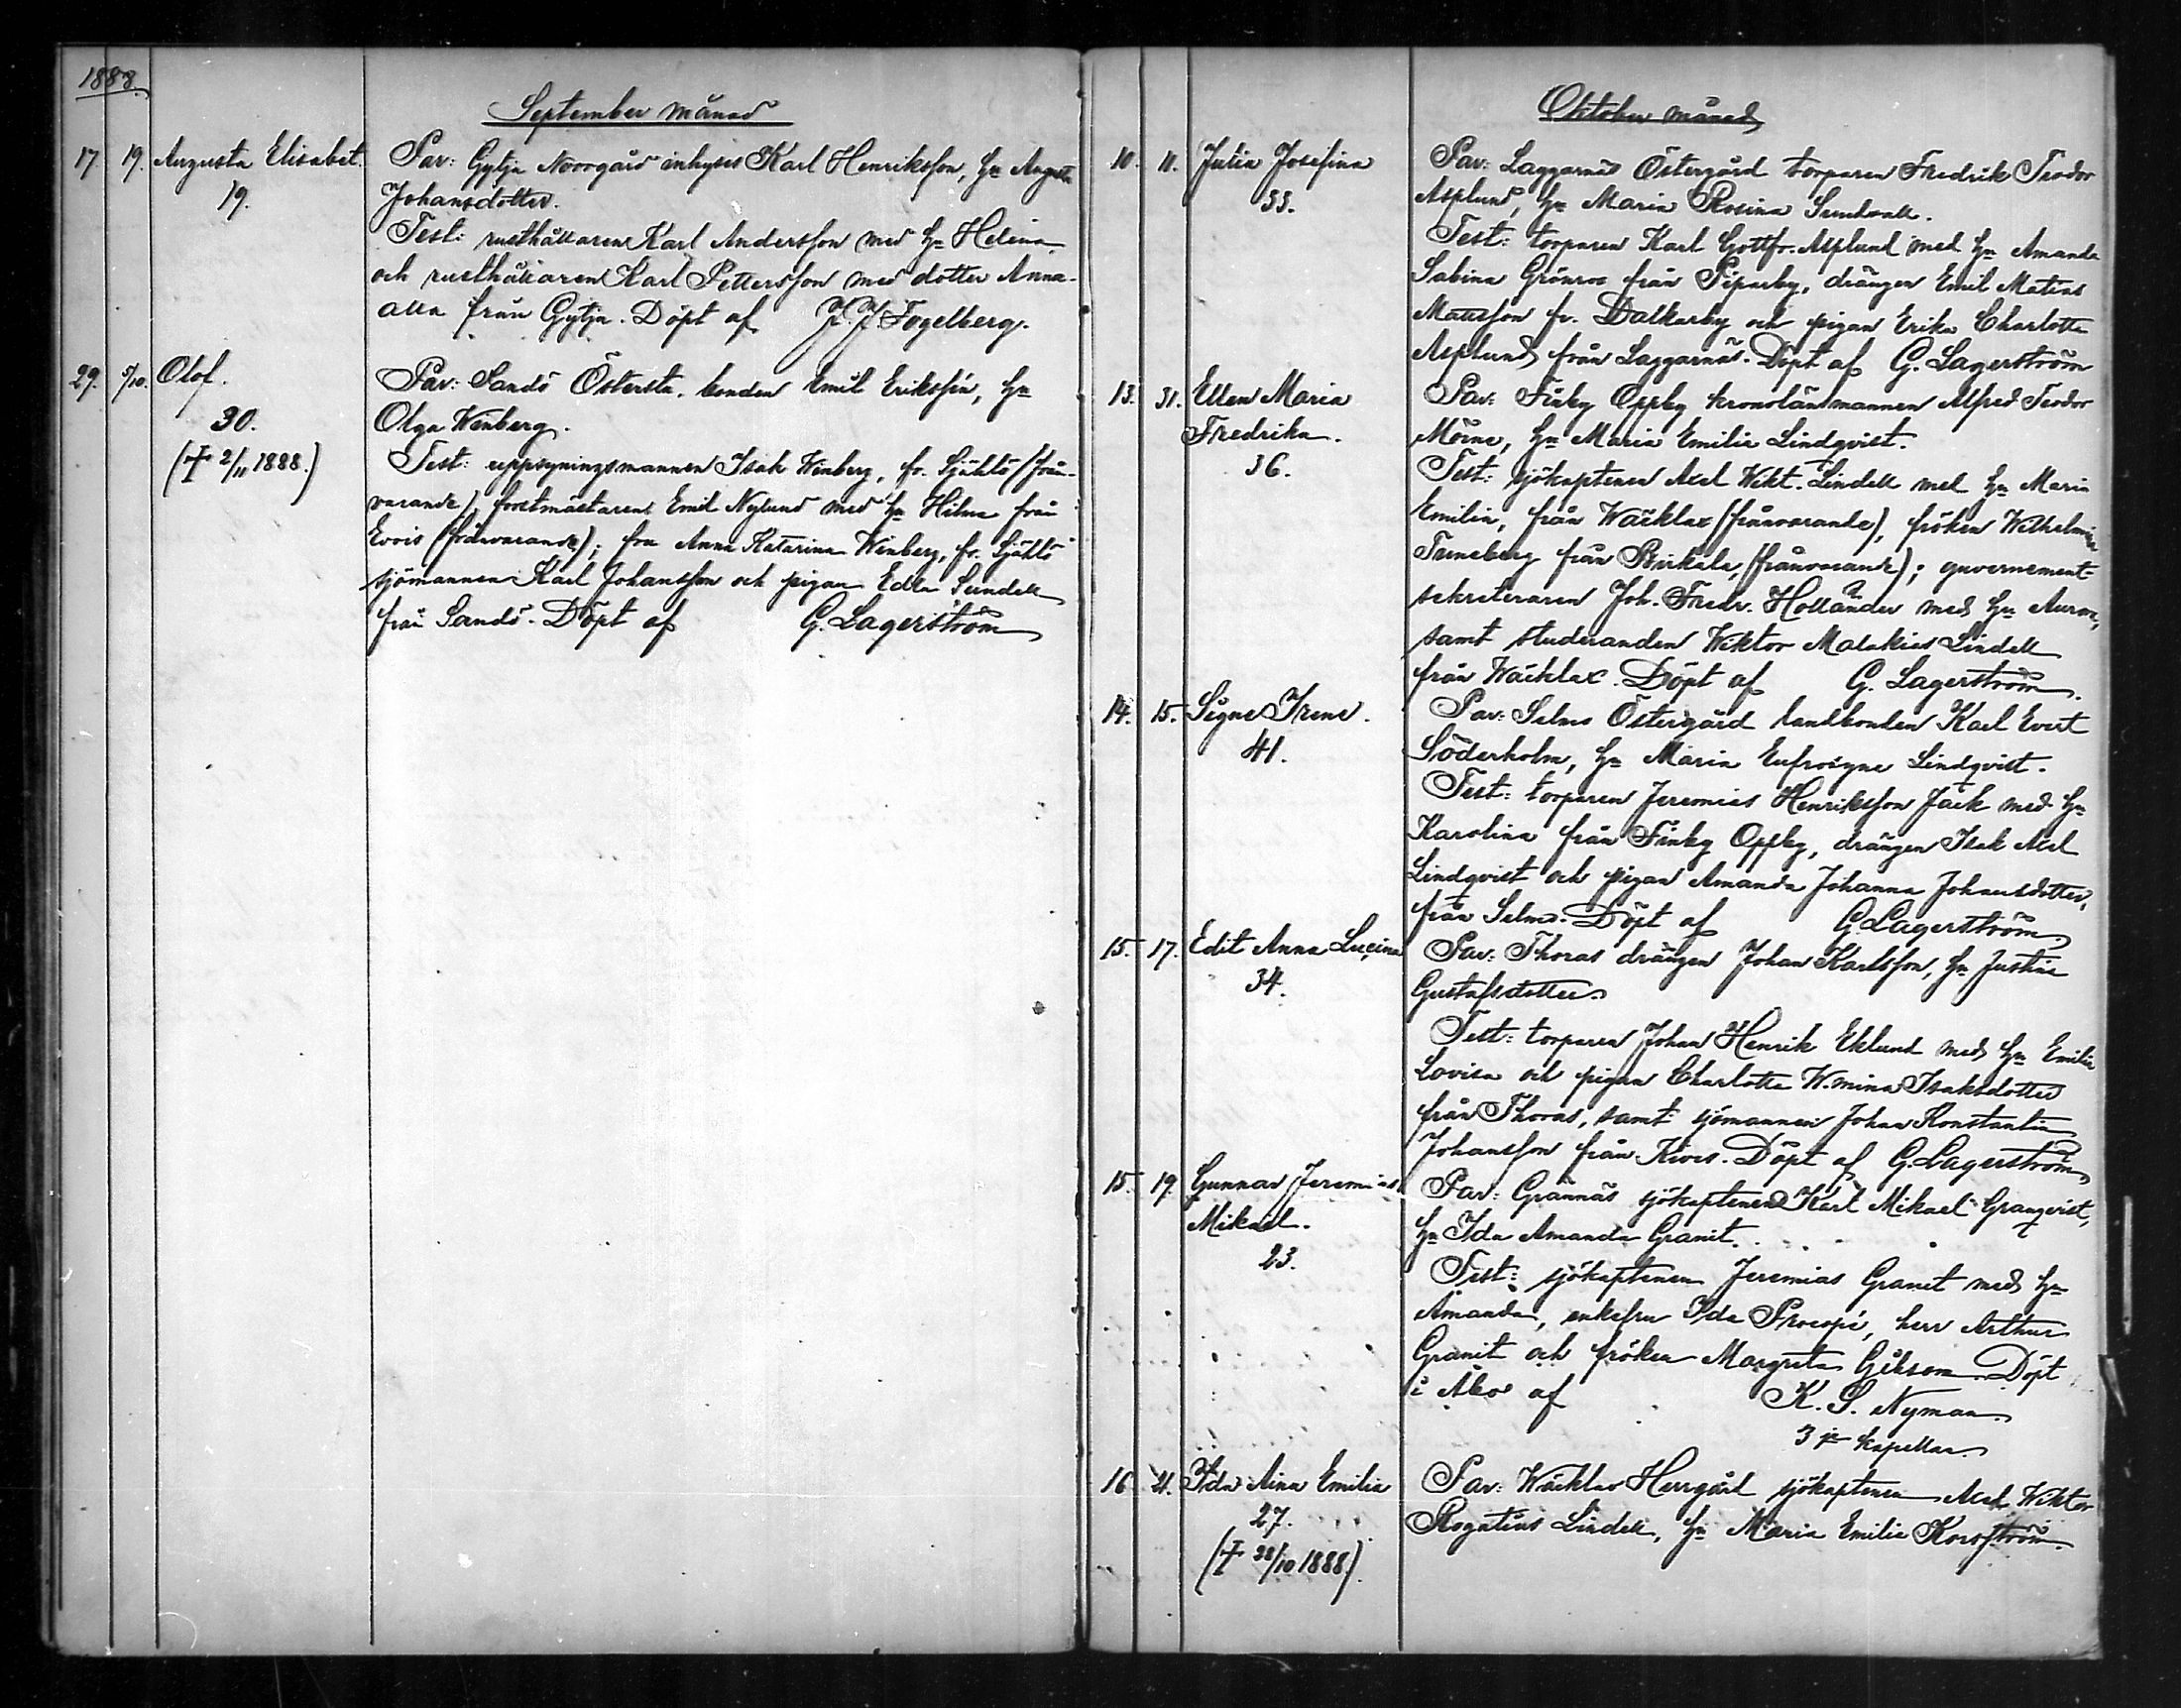 1888.
September månad
17 19. Augusta Elisabet. Par: Gytja Norrgård inhyses Karl Henriksson, Hu Augusta
19. Johansdotter.
Test: rusthållaren Karl Andersson med Hu Helena
och rusthållaren Karl Pettersson med dotter Anna
alla från Gytja. Döpt af J. J. Fogelberg.
29. 5/10. Olof. Par: Sandö Östersta bonden Emil Eriksson, Hu
30. Olga Winberg.
(† 2/11 1888.) Test: uppsyningsmannen Isak Winberg, fr. Själklö (från-
varande), forstmästaren Emil Nylund med Hu Hilma från
Evois (frånvarande); fru Anna Katarina Winberg, fr. Själklö
sjömannen Karl Johansson och pigan Edla Sundell
från Sandö. Döpt af G. Lagerström
Oktober månad
10. 11. Julia Josefina Par: Laggarnäs Östergård torparen Fredrik Teodor
33. Asplund, Hu Maria Rosina Sundvall.
Test: torparen Karl Gottfr. Asplund med Hu Amanda
Sabina Grönroos från Piparby, drängen Emil Matias
Mansson fr. Dalkarby och pigan Erika Charlotta
Asplund från Laggarnäs. Döpt af G. Lagerström
13. 31. Ellen Maria Par: Finby Oppby kronolänsmannen Alfred Teodor
Fredrika. Mörne, Hu Maria Emilia Lindqvist.
36. Test: sjökaptenen Axel Wikt. Lindell med Hu Maria
Emilia, från Wäcklax (frånvarande), fröken Wilhelmina
Terneberg från Birkala, (frånvarande); guvernement-
sekreteraren Joh. Fredr. Holländer med Hu Aurora,
samt studeranden Wiktor Malakias Lindell
från Wäcklax. Döpt af G. Lagerström.
14. 15. Signe Irene. Par: Selmo Östergård landbonden Karl Evert
41. Söderholm, Hu Maria Eufrosyne Lindqvist.
Test: torparen Jeremias Henriksson Jäck med Hu
Karolina från Finby Oppby, drängen Isak Axel
Lindqvist och pigan Amanda Johanna Johansdotter,
från Selmo. Döpt af G. Lagerström.
15. 17. Edit Anna Lucina Par: Thoras drängen Johan Karlsson, Hu Justina
34. Gustafsdotter.
Test: torparen Johan Henrik Eklund med Hu Emilia
Lovisa och pigan Charlotta W.mina Isaksdotter
från Thoras, samt sjömannen Johan Konstantin
Johansson från Kivis. Döpt af G. Lagerström
15. 19. Gunnar Jeremias Par: Grannäs sjökaptenen Karl Mikael Granqvist,
Mikael. Hu Ida Amanda Granit.
23. Test: sjökaptenen Jeremias Granit med Hu
Amanda, enkefru Ida Procopé, herr Arthur
Granit och fröken Margreta Gibson. Döpt
i Åbo af K. S. Nyman.
3 je kapellan.
16 21. Ida Aina Emilia Par: Wäcklax Herrgård sjökaptenen Axel Wiktor
27. Rogatius Lindell, Hu Maria Emilie Korsström.
(† 28/10 1888.)